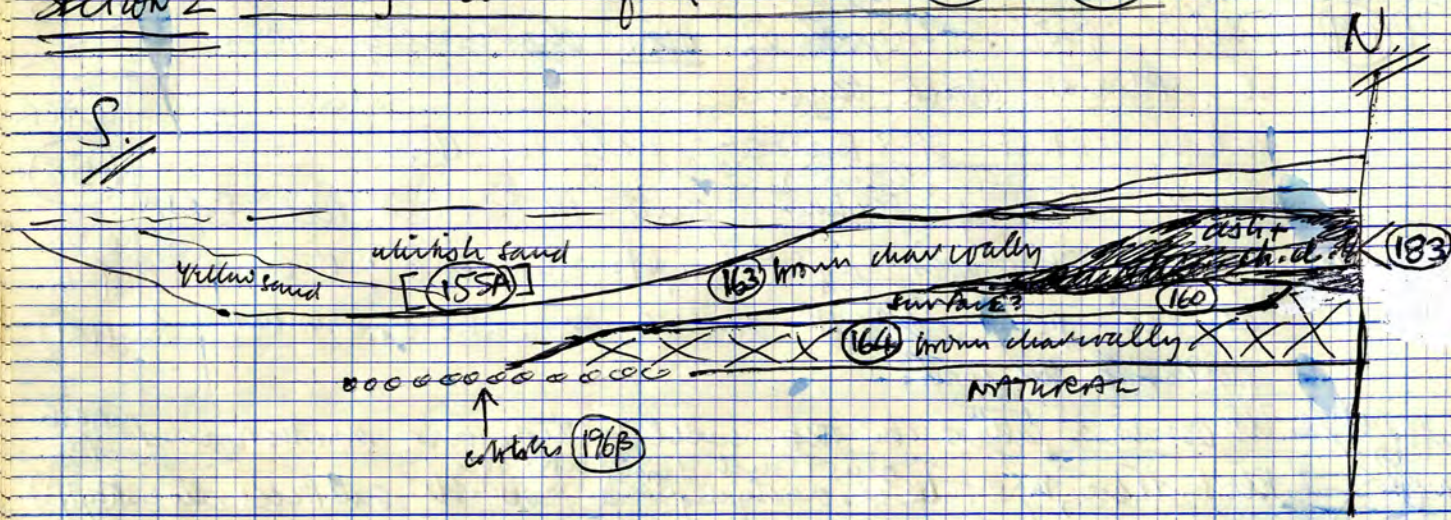 Section 2
N.
S.
whitish sand
Yellow sand
[155A]
163 brown charcoally
ash +
ch. d.
183
surface?
160
164 brown charcoally
NATURAL
cobbles 196B